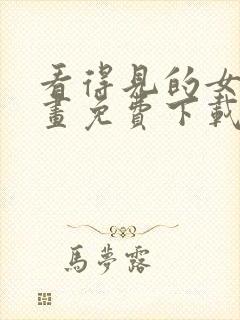 看得見的女
畫免費下載
馬夢露